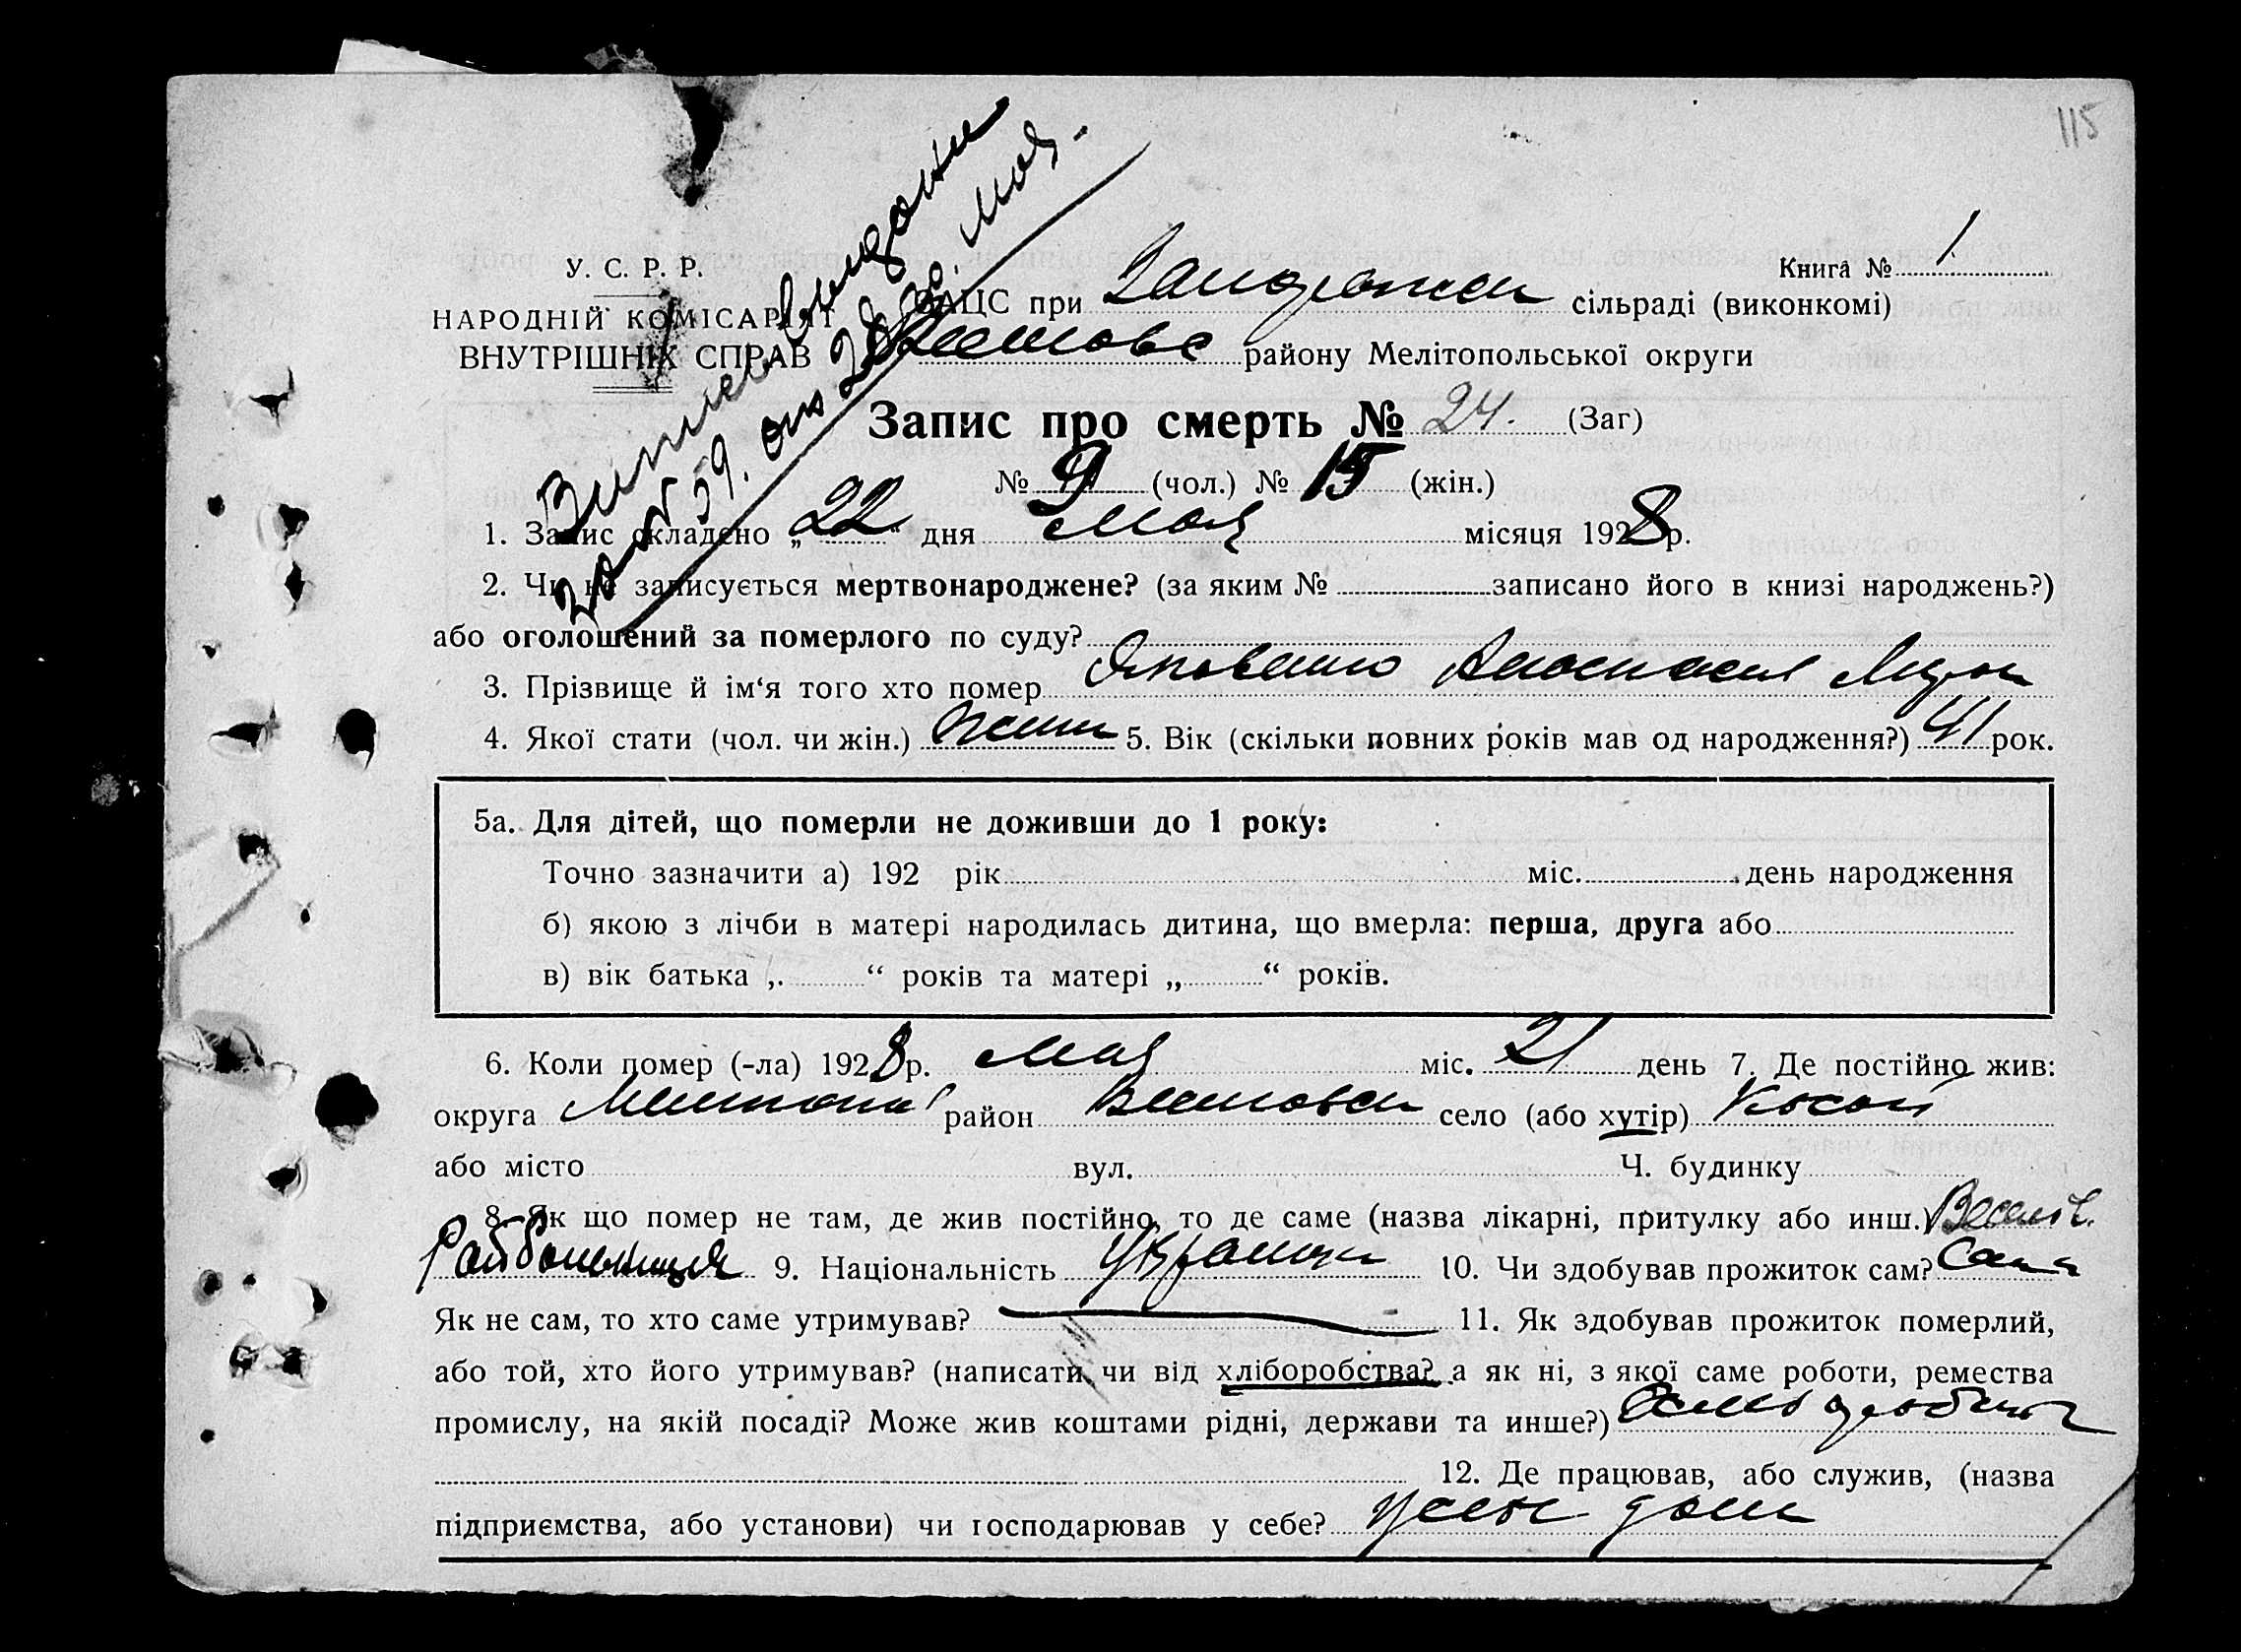 115
У. С. Р. Р.
НАРОДНІЙ КОМІСАРІЯТ
ВНУТРІШНІХ СПРАВ
Книга № 1
ЗАЦС при сільраді (виконкомі)
району Мелітопольської округи
Запис про смерть № 24. (Заг)
№ 9 (чол.) № 15 (жін.)
1. Запис складено „22“ дня Мая місяця 1928 р.
2. Чи не записується мертвонароджене? (за яким № записано його в книзі народжень?)
або оголошений за померлого по суду?
3. Прізвище й ім‘я того хто помер Яковенко Анастасия
4. Якої стати (чол. чи жін.) 5. Вік (скільки повних років мав од народження?) 41 рок.
5а. Для дітей, що померли не доживши до 1 року:
Точно зазначити а) 192 рік міс. день народження
б) якою з лічби в матері народилась дитина, що вмерла: перша, друга або
в) вік батька „ “ років та матері „ “ років.
6. Коли помер (-ла) 1928 р. Мая міс. 21 день 7. Де постійно жив:
округа район село (або хутір) Косой
або місто вул. Ч. будинку
8. Як що помер не там, де жив постійно, то де саме (назва лікарні, притулку або инш.)
Райбольниця 9. Національність 10. Чи здобував прожиток сам? Сама
Як не сам, то хто саме утримував? 11. Як здобував прожиток померлий,
або той, хто його утримував? (написати чи від хліборобства? а як ні, з якої саме роботи, ремества
промислу, на якій посаді? Може жив коштами рідні, держави та инше?)
12. Де працював, або служив, (назва
підприємства, або установи) чи господарював у себе?